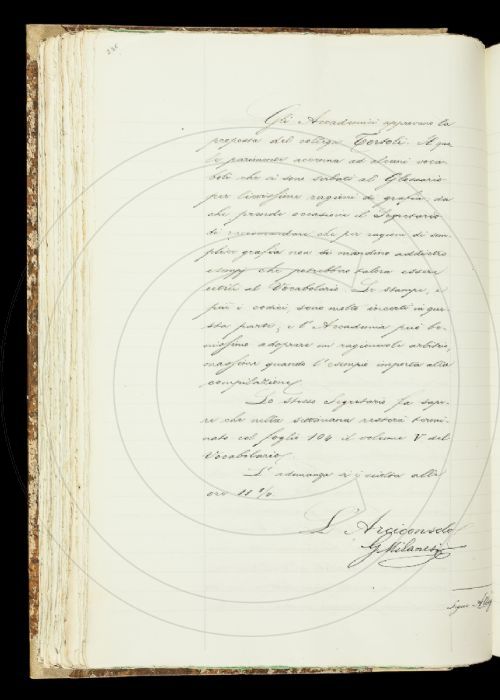 Gli Accademici approvano la
proposta del collega Tortoli. Il qua
le parimente accenna ad alcuni voca
boli che si sono serbati al Glossario
per lievissime ragioni di grafia; da
che prende occasione il Segretario
di raccomandare che per ragioni di sem-
plice grafia non si mandino addietro
esempj che potrebbero talora essere
utili al Vocabolario. Le stampe, e
più i codici, sono molto incerti in que-
sta parte; e l'Accademia può be-
nissimo adoprare un ragionevole arbitrio,
massime quando l'esempio importa alla
compilazione.
Lo stesso Segretario fa sape-
re che nella settimana resterà termi-
nato col foglio 104 il volume V del
Vocabolario.
L'adunanza si è sciolta alle
ore 11 1/2.
L'Arciconsolo
G Milanesi
Segue